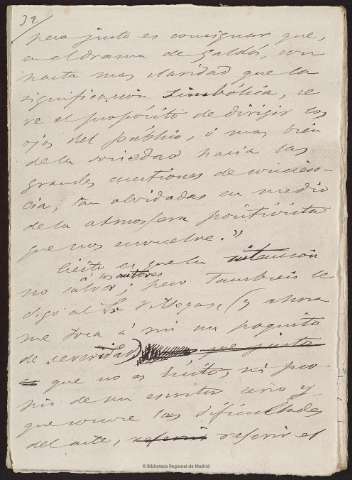 39
pero justo es consignar que,
en el drama de Galdós, con
harta mas claridad que la
significación simbólica, se
ve el propósito de dirigir los
ojos del público, ó mas bien
de la sociedad hacia las
grandes cuestiones de concien-
cia, tan olvidadas en medio
de la atmósfera positivista
que nos envuelve."
Cierto es que la intención
no salva á los autores; pero tambien le
digo al Sr Villegas, (y ahora
me toca á mi un poquito
de severidad) que
que no es lícito, ni pro-
pio de un escritor serio y
que conoce las dificultades
del arte, referir el
© Biblioteca Regional de Madrid